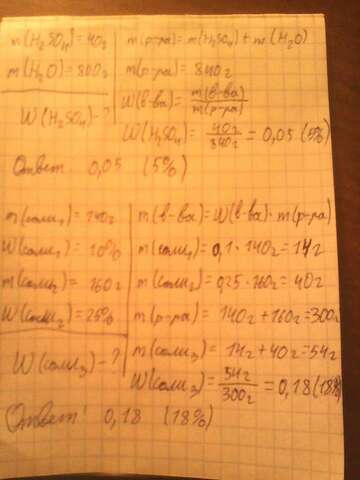 m(H₂SO₄)=40г
m(H₂O)=800г
W(H₂SO₄)-?
m(р-ра)=m(H₂SO₄)+m(H₂O)
m(р-ра)=840г
W(в-ва)=m(в-ва)/m(р-ра)
W(H₂SO₄)=40г/840г=0,05 (5%)
Ответ 0,05 (5%)
m(соли₁)=140г
W(соли₁)=10%
m(соли₂)=160г
W(соли₂)=25%
W(соли₃)-?
m(в-ва)=W(в-ва)·m(р-ра)
m(соли₁)=0,1·140г=14г
m(соли₂)=0,25·160г=40г
m(р-ра)=140г+160г=300г
m(соли₃)=14г+40г=54г
W(соли₃)=54г/300г=0,18(18%)
Ответ: 0,18 (18%)